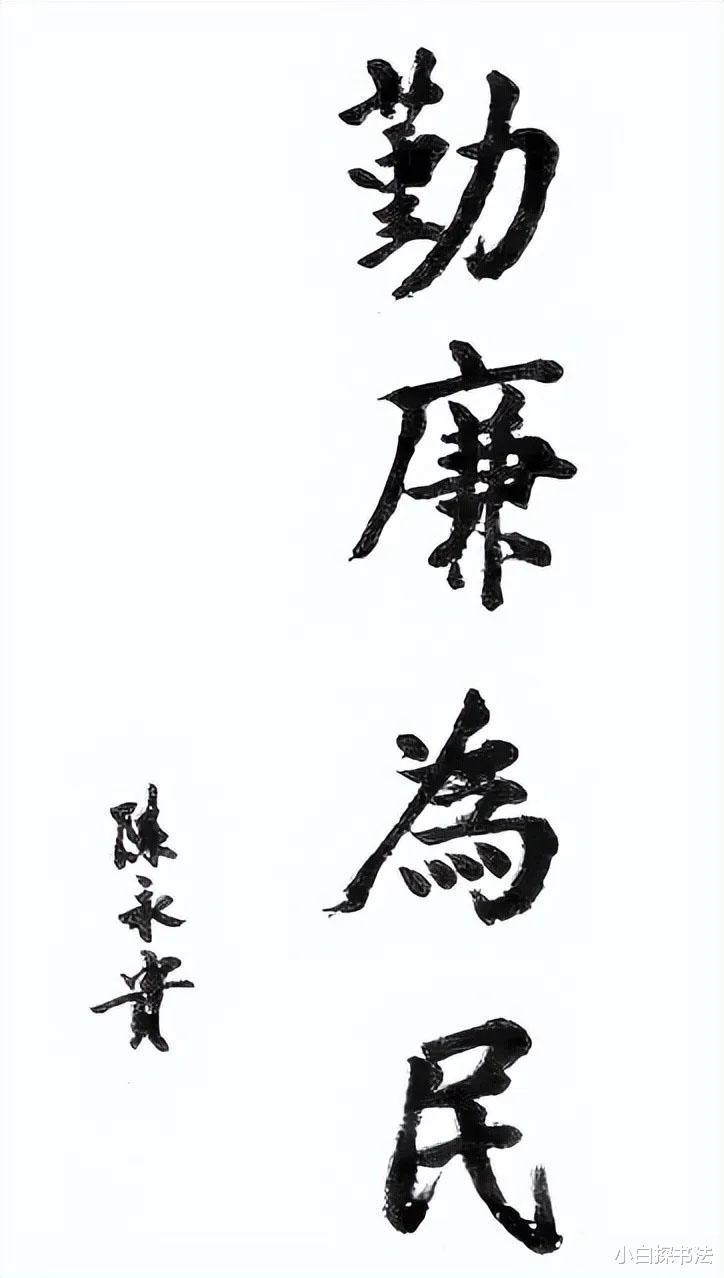 勤廉為民
陳永貴
小白探书法